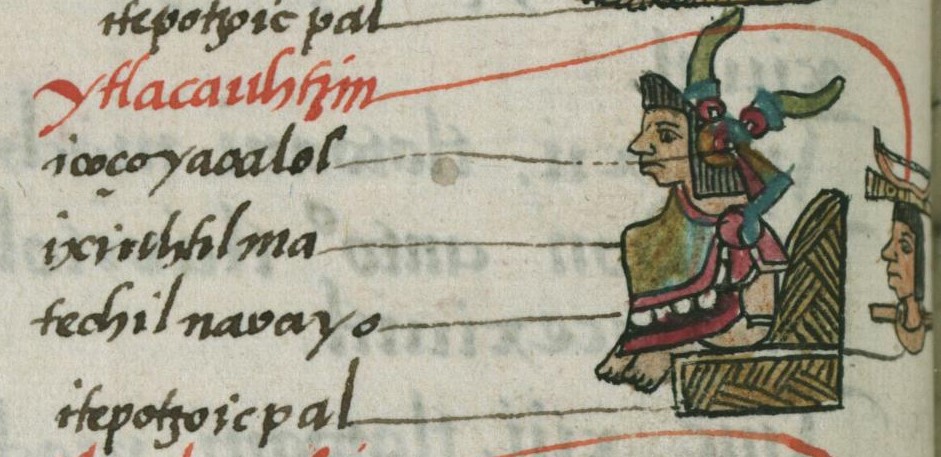 itepotzoic pal
ytlacauhtzin
icoçoyaoalol
ixiuhtilma
techilnaoayo
itepotzoicpal